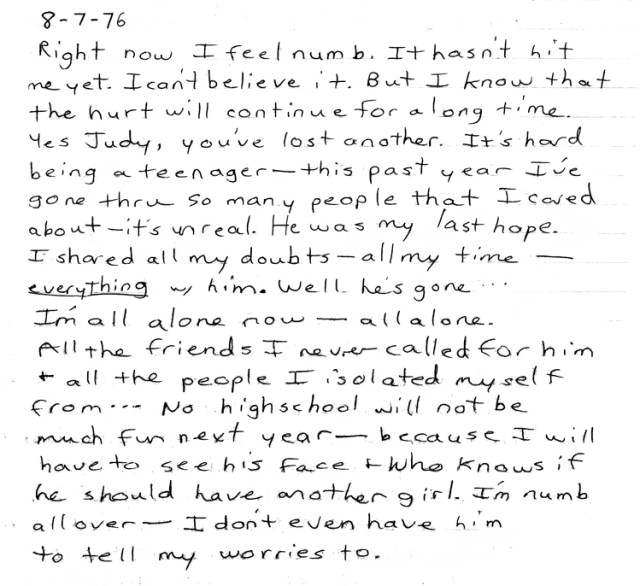 8-7-76
Right now I feel numb. It hasn't hit
me yet. I can't believe it. But I know that
the hurt will continue for a long time.
Yes Judy, you've lost another. It's hard
being a teenager — this past year I've
gone thru so many people that I cared
about — it's unreal. He was my last hope.
I shared all my doubts — all my time —
everything w/ him. Well he's gone ...
I'm all alone now — all alone.
All the friends I never called for him
+ all the people I isolated myself
from ... No highschool will not be
much fun next year — because I will
have to see his face + who knows if
he should have another girl. I'm numb
all over — I don't even have him
to tell my worries to.